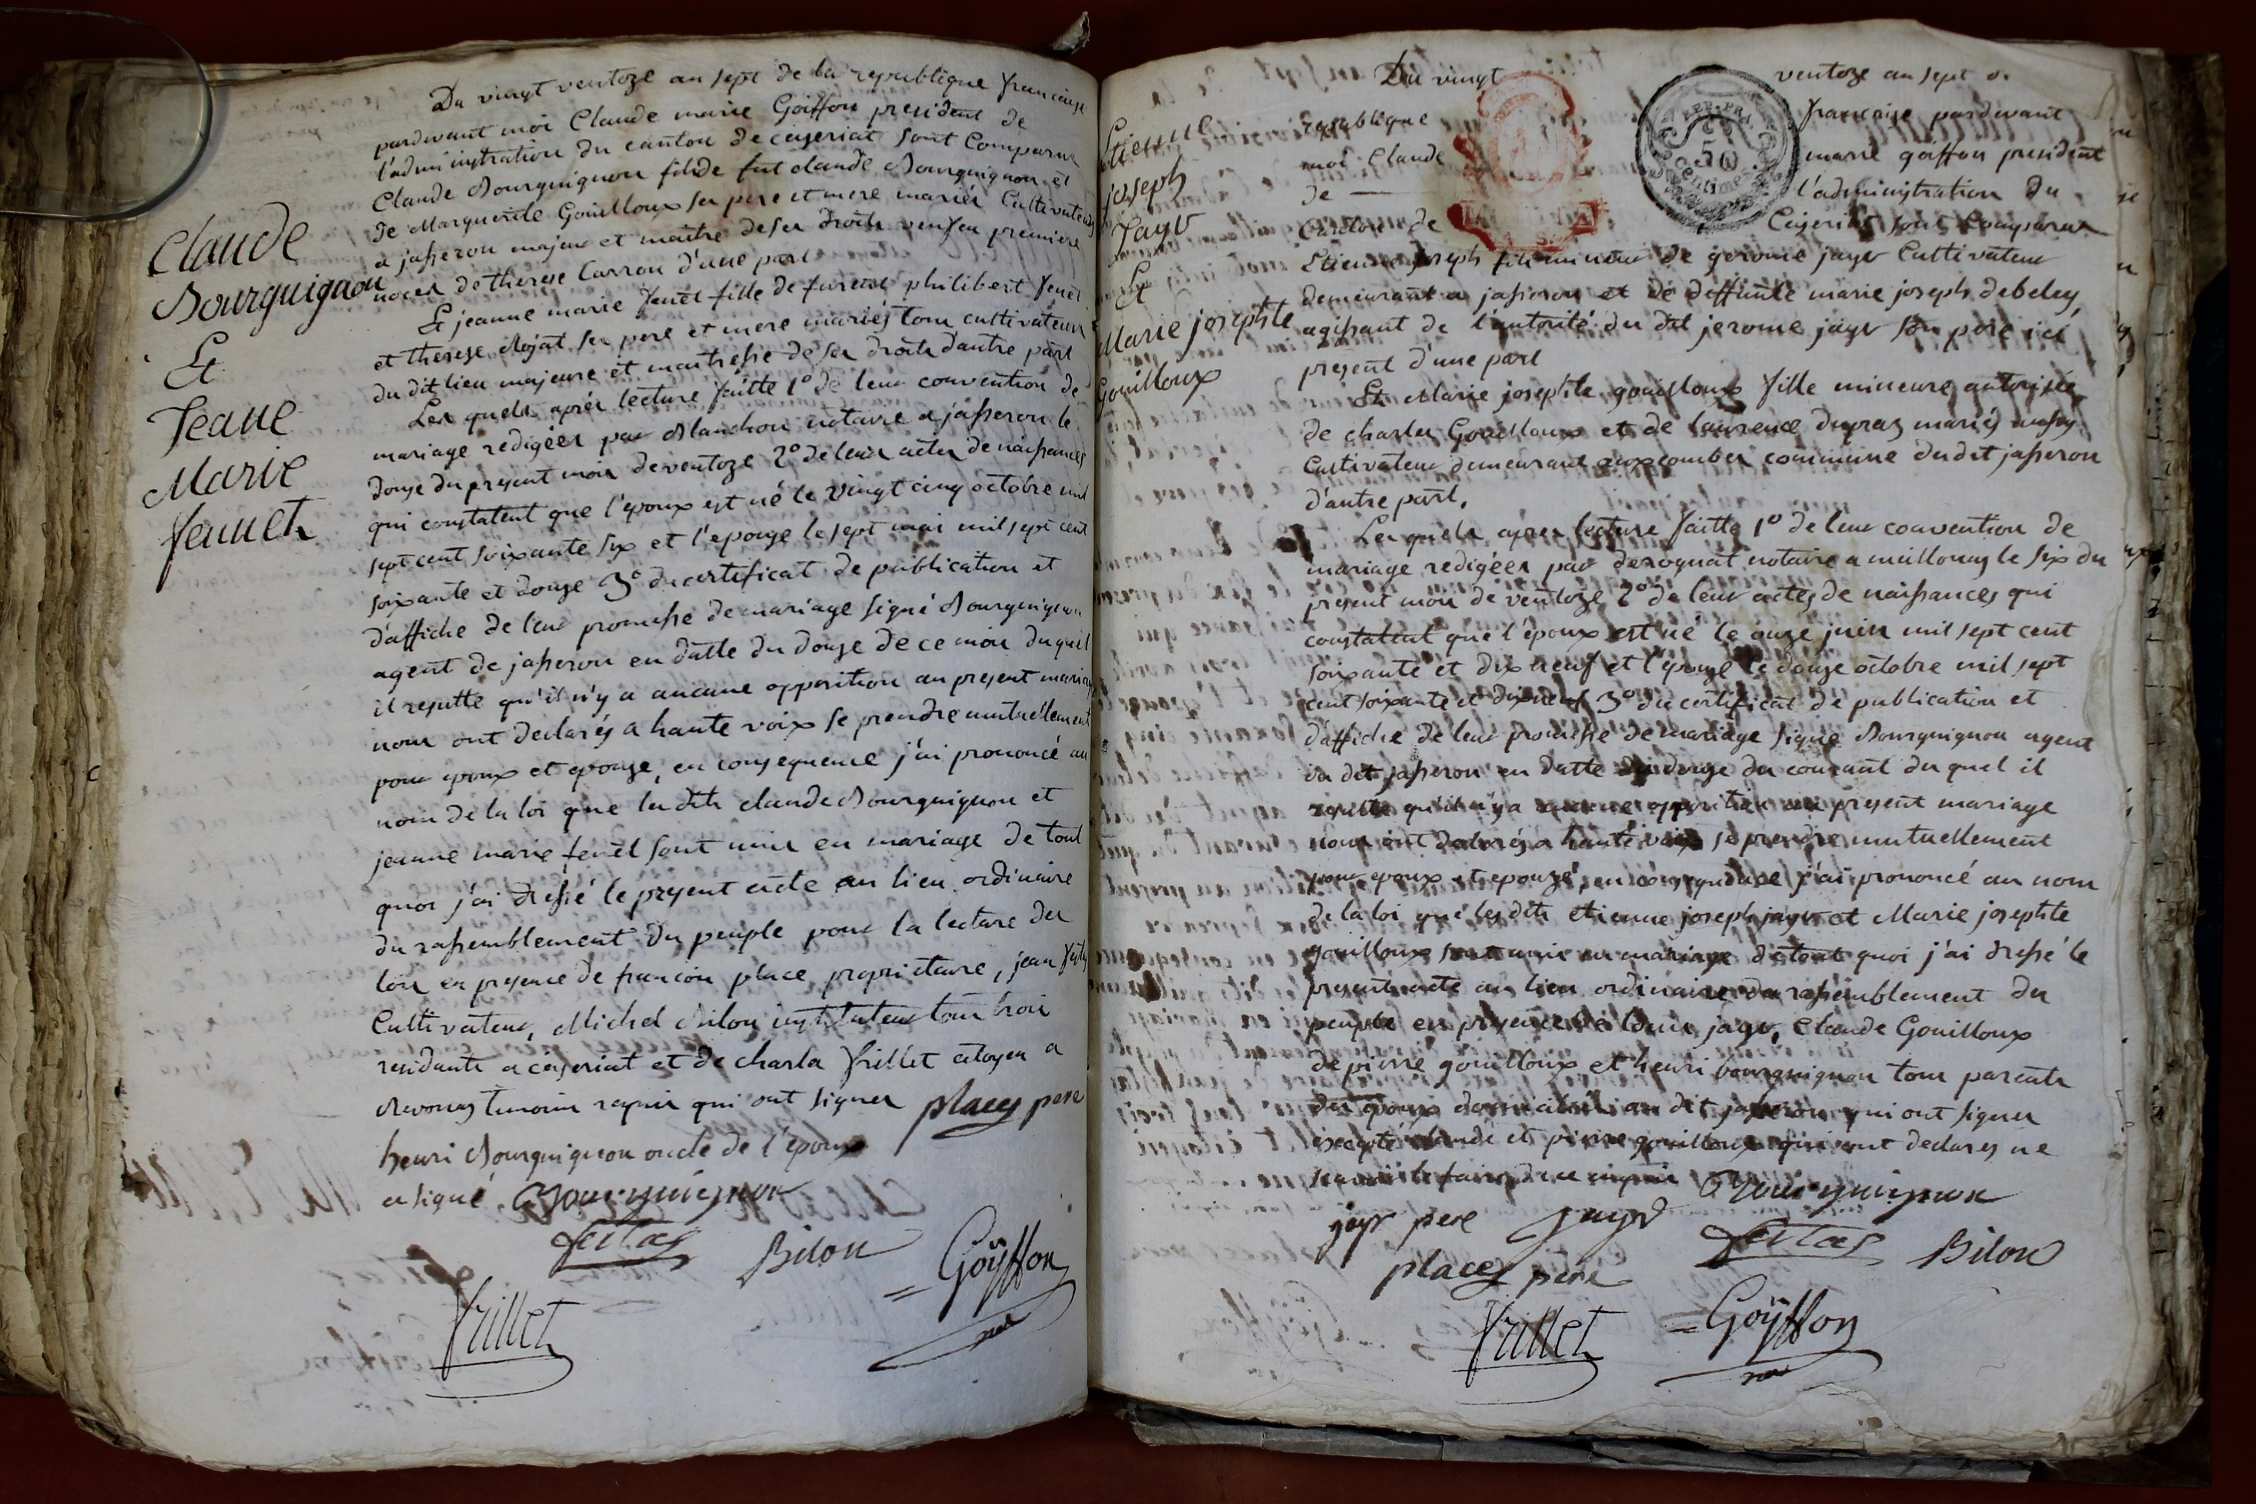 Du vingt ventoze an sept de la republique francaise
pardevant moi Claude marie Goiffon president de
l'administration du canton de ceyseriat sont Comparus
Claude Bourguignon fils de fut claude Bourguignon et
de Marguerite Gouilloux ses pere et mere mariés Cultivateurs
a jasseron majeur et maitre de ses droits veuf en premiere
noces de therese Carron d'une part
Claude
Bourguignon
Et
Jeane
Marie
fenneth
Et jeanne marie fenet fille de philibert fenet
et therese ses pere et mere mariés tous cultivateurs
du dit lieu majeure et maitresse de ses droits d'autre part
Les quels après lecture faitte 1º de leur convention de
mariage redigées par Blanchon notaire a jasseron le
douze du present mois de ventoze 2º de leurs actes de naissances
qui constatent que l'epoux est né le vingt cinq octobre mil
sept cent soixante six et l'epouze le sept mai mil sept cent
soixante et douze 3º du certificat de publication et
d'affiche de leur promesse de mariage signé Bourguignon
agent de jasseron en datte du douze de ce mois du quel
il resulte qu'il n'y a aucune opposition au present mariage
nous ont declarés a haute voix se prendre mutuellement
pour epoux et epouze, en consequence j'ai prononcé au
nom de la loi que les dits claude Bourguignon et
jeanne marie fenet sont unis en mariage de tout
quoi j'ai dressé le present acte au lieu ordinaire
du rassemblement du peuple pour la lecture des
loix en presence de francois place proprietaire, jean
Cultivateur, Michel Bilon instituteur tous trois
residants a ceyseriat et de charles frillet citoyen a
Revonas temoins requis qui ont signer places pere
henri Bourguignon oncle de l'epoux
a signé Bourguignon
Bilon
Goÿffon
frillet
Etienne
joseph
Jayr
Et
Marie josephte
Gouilloux
Du vingt ventoze an sept
republique francaise pardevant
moi Claude marie goiffon president
de l'administration du
Canton de Ceyseriat sont Comparus
Etienne joseph fils mineur de gerome jayr Cultivateur
demeurant a jasseron et de deffunte marie joseph debeley
agissant de l'autorité du dit jerome jayr son pere ici
present d'une part
Et Marie josephte gouilloux fille mineure autorisée
de charles Gouilloux et de laurence dupras mariés aussy
Cultivateur demeurant aux combes commune du dit jasseron
d'autre part.
Les quels après lecture faitte 1º de leur convention de
mariage redigées par derognat notaire a meillonas le six du
present mois de ventoze 2º de leur actes de naissances qui
constatent que l'époux est né le onze juin mil sept cent
soixante et dix neuf et l'epouze le douze octobre mil sept
cent soixante et dix neuf 3º du certificat de publication et
d'affiche de leur promesse de mariage signé Bourguignon agent
du dit jasseron en datte du douze du courant du quel il
resulte qu'il n'y a aucune opposition au present mariage
nous ont declarés a haute voix se prendre mutuellement
pour epoux et epouze, en consequence j'ai prononcé au nom
de la loi que les dits etienne joseph jayr et Marie josephte
gouilloux sont unis en mariage de tout quoi j'ai dressé le
present acte au lieu ordinaire du rassemblement du
peuple en presence de louis jayr, Claude Gouilloux
de pierre gouilloux et henri bourguignon tous parents
des epoux domiciliés au dit jasseron qui ont signer
excepté claude et pierre gouilloux qui ont declarés ne
scavoir le faire de ce enquis
Bourguignon
jayr pere
jayr
Bilon
places pere
frillet
Goÿffon